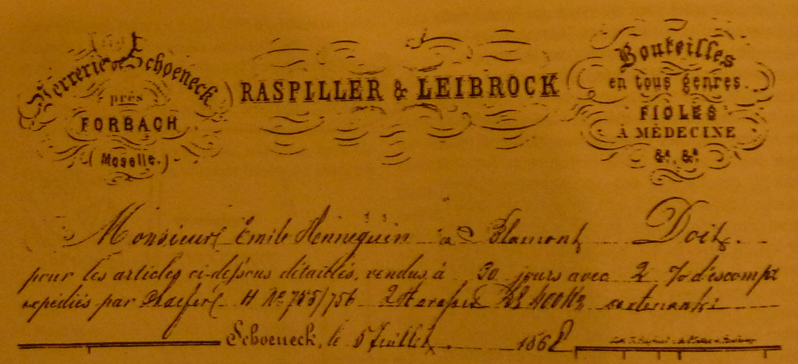 Verrerie de Schoeneck
près
FORBACH
(Moselle.)
RASPILLER & LEIBROCK
Bouteilles
en tous genres.
FIOLES
À MÉDECINE
&a. &a.
Monsieur Emile Hennequin à Blamont Doit
pour les articles ci-dessous détaillés, vendus à 30 jours avec 2 % d'escompt
expédiés par H No 755/756 2 contenants
Schoeneck, le 5 Juillet 1868